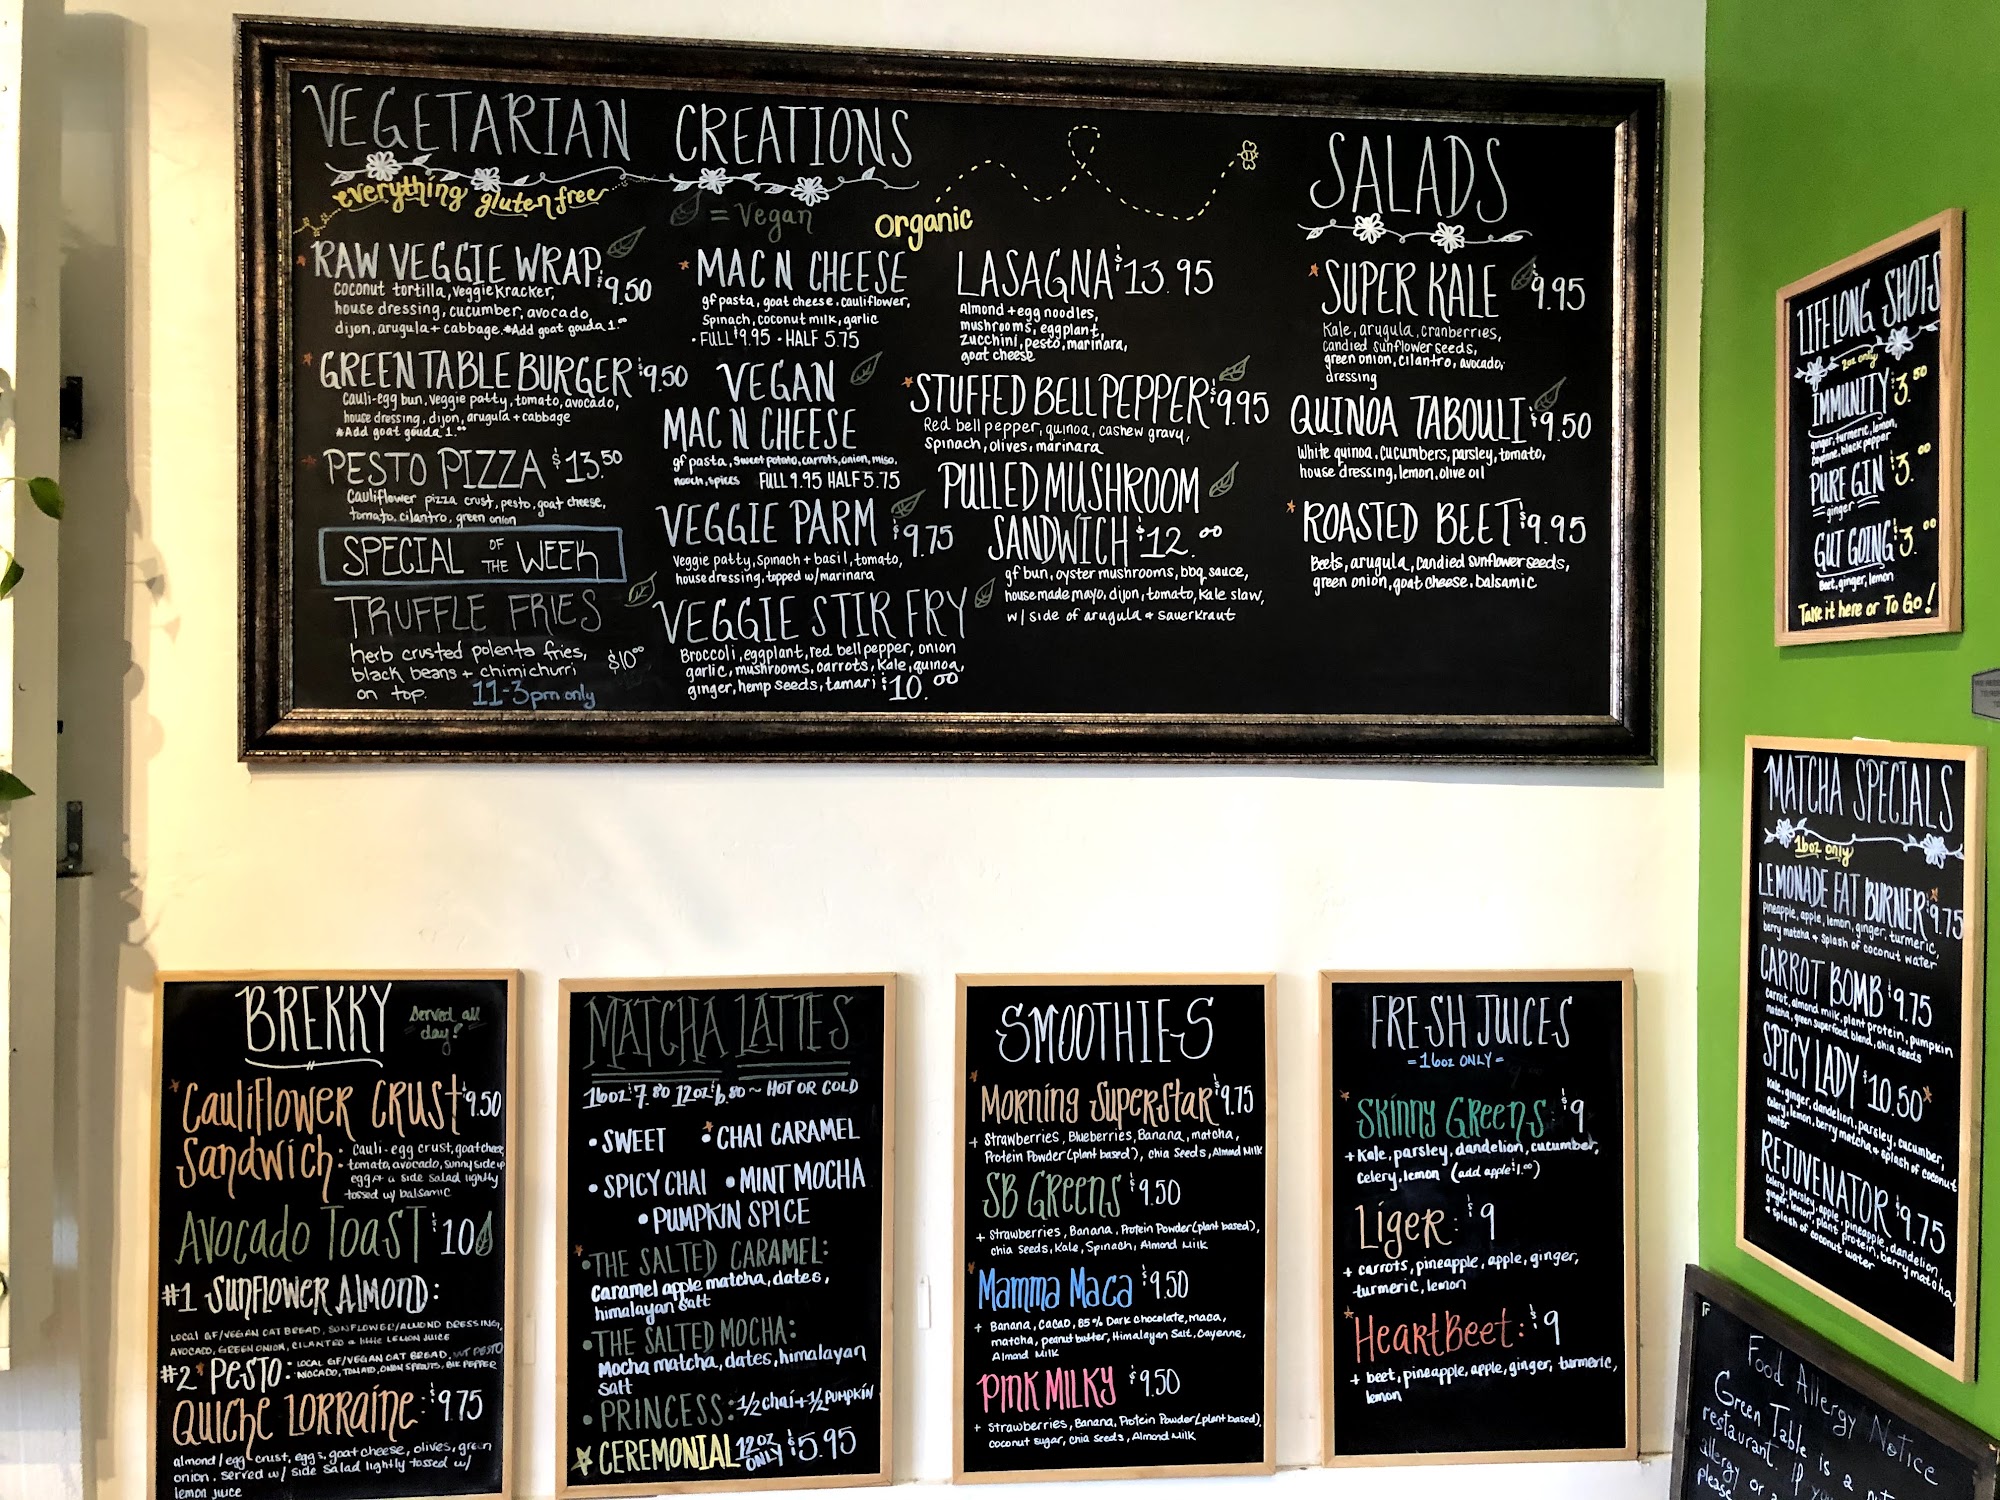 VEGETARIAN CREATIONS
everything gluten free
= Vegan
organic
RAW VEGGIE WRAP $9.50
coconut tortilla, veggie kracker,
house dressing, cucumber, avocado,
dijon, arugula + cabbage. *Add goat gouda 1.00
GREEN TABLE BURGER $9.50
Cauli-egg bun, veggie patty, tomato, avocado,
house dressing, dijon, arugula + cabbage
*Add goat gouda 1.00
PESTO PIZZA $13.50
Cauliflower pizza crust, pesto, goat cheese,
tomato, cilantro, green onion
SPECIAL OF THE WEEK
TRUFFLE FRIES
herb crusted polenta fries,
black beans + chimichurri
on top.
$10.00
11-3pm only
MAC N CHEESE
gf pasta, goat cheese, cauliflower,
Spinach, coconut milk, garlic
• FULL $9.95 • HALF 5.75
VEGAN
MAC N CHEESE
gf pasta, sweet potato, carrots, onion, miso,
nooch, spices FULL 9.95 HALF 5.75
VEGGIE PARM $9.75
Veggie patty, spinach + basil, tomato,
house dressing, topped w/marinara
VEGGIE STIR FRY
Broccoli, eggplant, red bell pepper, onion
garlic, mushrooms, carrots, kale, quinoa,
ginger, hemp seeds, tamari $10.00
LASAGNA $13.95
Almond + egg noodles,
mushrooms, eggplant,
zucchini, pesto, marinara,
goat cheese
STUFFED BELL PEPPER $9.95
Red bell pepper, quinoa, cashew gravy,
spinach, olives, marinara
PULLED MUSHROOM
SANDWICH $12.00
gf bun, oyster mushrooms, bbq sauce,
house made mayo, dijon, tomato, kale slaw,
w/ side of arugula + sauerkraut
SALADS
SUPER KALE $9.95
Kale, arugula, cranberries,
candied sunflower seeds,
green onion, cilantro, avocado,
dressing
QUINOA TABOULI $9.50
White quinoa, cucumbers, parsley, tomato,
house dressing, lemon, olive oil
ROASTED BEET $9.95
Beets, arugula, candied sunflower seeds,
green onion, goat cheese, balsamic
LIFELONG SHOTS
2oz only
IMMUNITY $3.50
ginger, turmeric, lemon,
cayenne, black pepper
PURE GIN $3.00
ginger
GUT GOING $3.00
Beet, ginger, lemon
Take it here or To Go!
MATCHA SPECIALS
16oz only
LEMONADE FAT BURNER $9.75
pineapple, apple, lemon, ginger, turmeric,
berry matcha + splash of coconut water
CARROT BOMB $9.75
carrot, almond milk, plant protein, pumpkin
matcha, green superfood blend, chia seeds
SPICY LADY $10.50
kale, ginger, dandelion, parsley, cucumber,
celery, lemon, berry matcha + splash of coconut
water
REJUVENATOR $9.75
celery, parsley, apple, pineapple, dandelion
ginger, lemon, plant protein, berry matcha,
+ splash of coconut water
BREKKY
Served all
day!
Cauliflower Crust $9.50
Sandwich:
cauli-egg crust, goat cheese,
tomato, avocado, sunny side up
egg + a side salad lightly
tossed w/ balsamic
Avocado Toast $10
#1 Sunflower Almond:
LOCAL GF/VEGAN OAT BREAD, SUNFLOWER/ALMOND DRESSING,
AVOCADO, GREEN ONION, CILANTRO + little LEMON JUICE
#2 Pesto: LOCAL GF/VEGAN OAT BREAD, PESTO
AVOCADO, TOMATO, ONION SPROUTS, BLK PEPPER
Quiche Lorraine: $9.75
almond/egg crust, eggs, goat cheese, olives, green
onion. served w/ side salad lightly tossed w/
lemon juice
MATCHA LATTES
16oz $7.80 12oz $6.80 ~ HOT OR COLD
• SWEET • CHAI CARAMEL
• SPICY CHAI • MINT MOCHA
• PUMPKIN SPICE
• THE SALTED CARAMEL:
Caramel apple matcha, dates,
himalayan salt
• THE SALTED MOCHA:
Mocha matcha, dates, himalayan
salt
• PRINCESS: 1/2 chai + 1/2 PUMPKIN
CEREMONIAL 12oz ONLY $5.95
SMOOTHIES
Morning Superstar $9.75
+ Strawberries, Blueberries, Banana, matcha,
Protein Powder (plant based), chia seeds, Almond Milk
SB Greens $9.50
+ Strawberries, Banana, Protein Powder (plant based),
chia seeds, Kale, Spinach, Almond Milk
Mamma Maca $9.50
+ Banana, Cacao, 85% Dark chocolate, maca,
matcha, peanut butter, Himalayan Salt, Cayenne,
Almond Milk
Pink Milky $9.50
+ Strawberries, Banana, Protein Powder (plant based),
coconut sugar, chia seeds, Almond Milk
FRESH JUICES
= 16oz ONLY =
Skinny Greens: $9
+ Kale, parsley, dandelion, cucumber,
celery, lemon (add apple $1.00)
Liger: $9
+ carrots, pineapple, apple, ginger,
turmeric, lemon
HeartBeet: $9
+ beet, pineapple, apple, ginger, turmeric,
lemon
Food Allergy Notice
Green Table is a
restaurant. If
allergy or
please